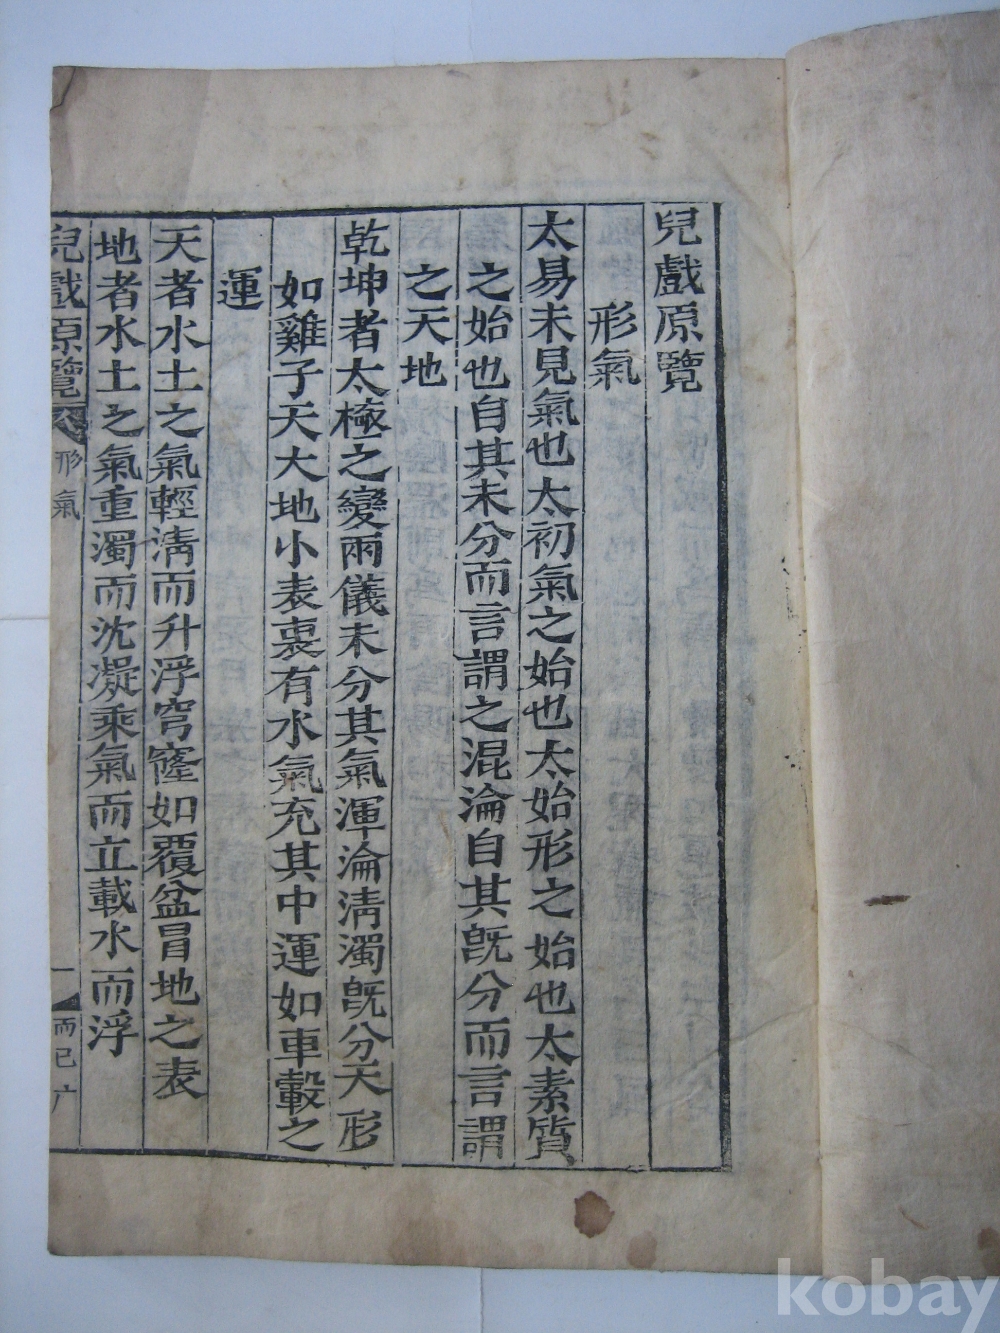 兒戲原覽
形氣
太易未見氣也太初氣之始也太始形之始也太素質
之始也自其未分而言謂之混淪自其旣分而言謂
之天地
乾坤者太極之變兩儀未分其氣渾淪淸濁旣分天形
如雞子天大地小表裏有水氣充其中運如車轂之
運
天者水土之氣輕淸而升浮穹窿如覆盆冒地之表
地者水土之氣重濁而沈凝乘氣而立載水而浮
兒戲原覽 形氣 一 而已广
kobay